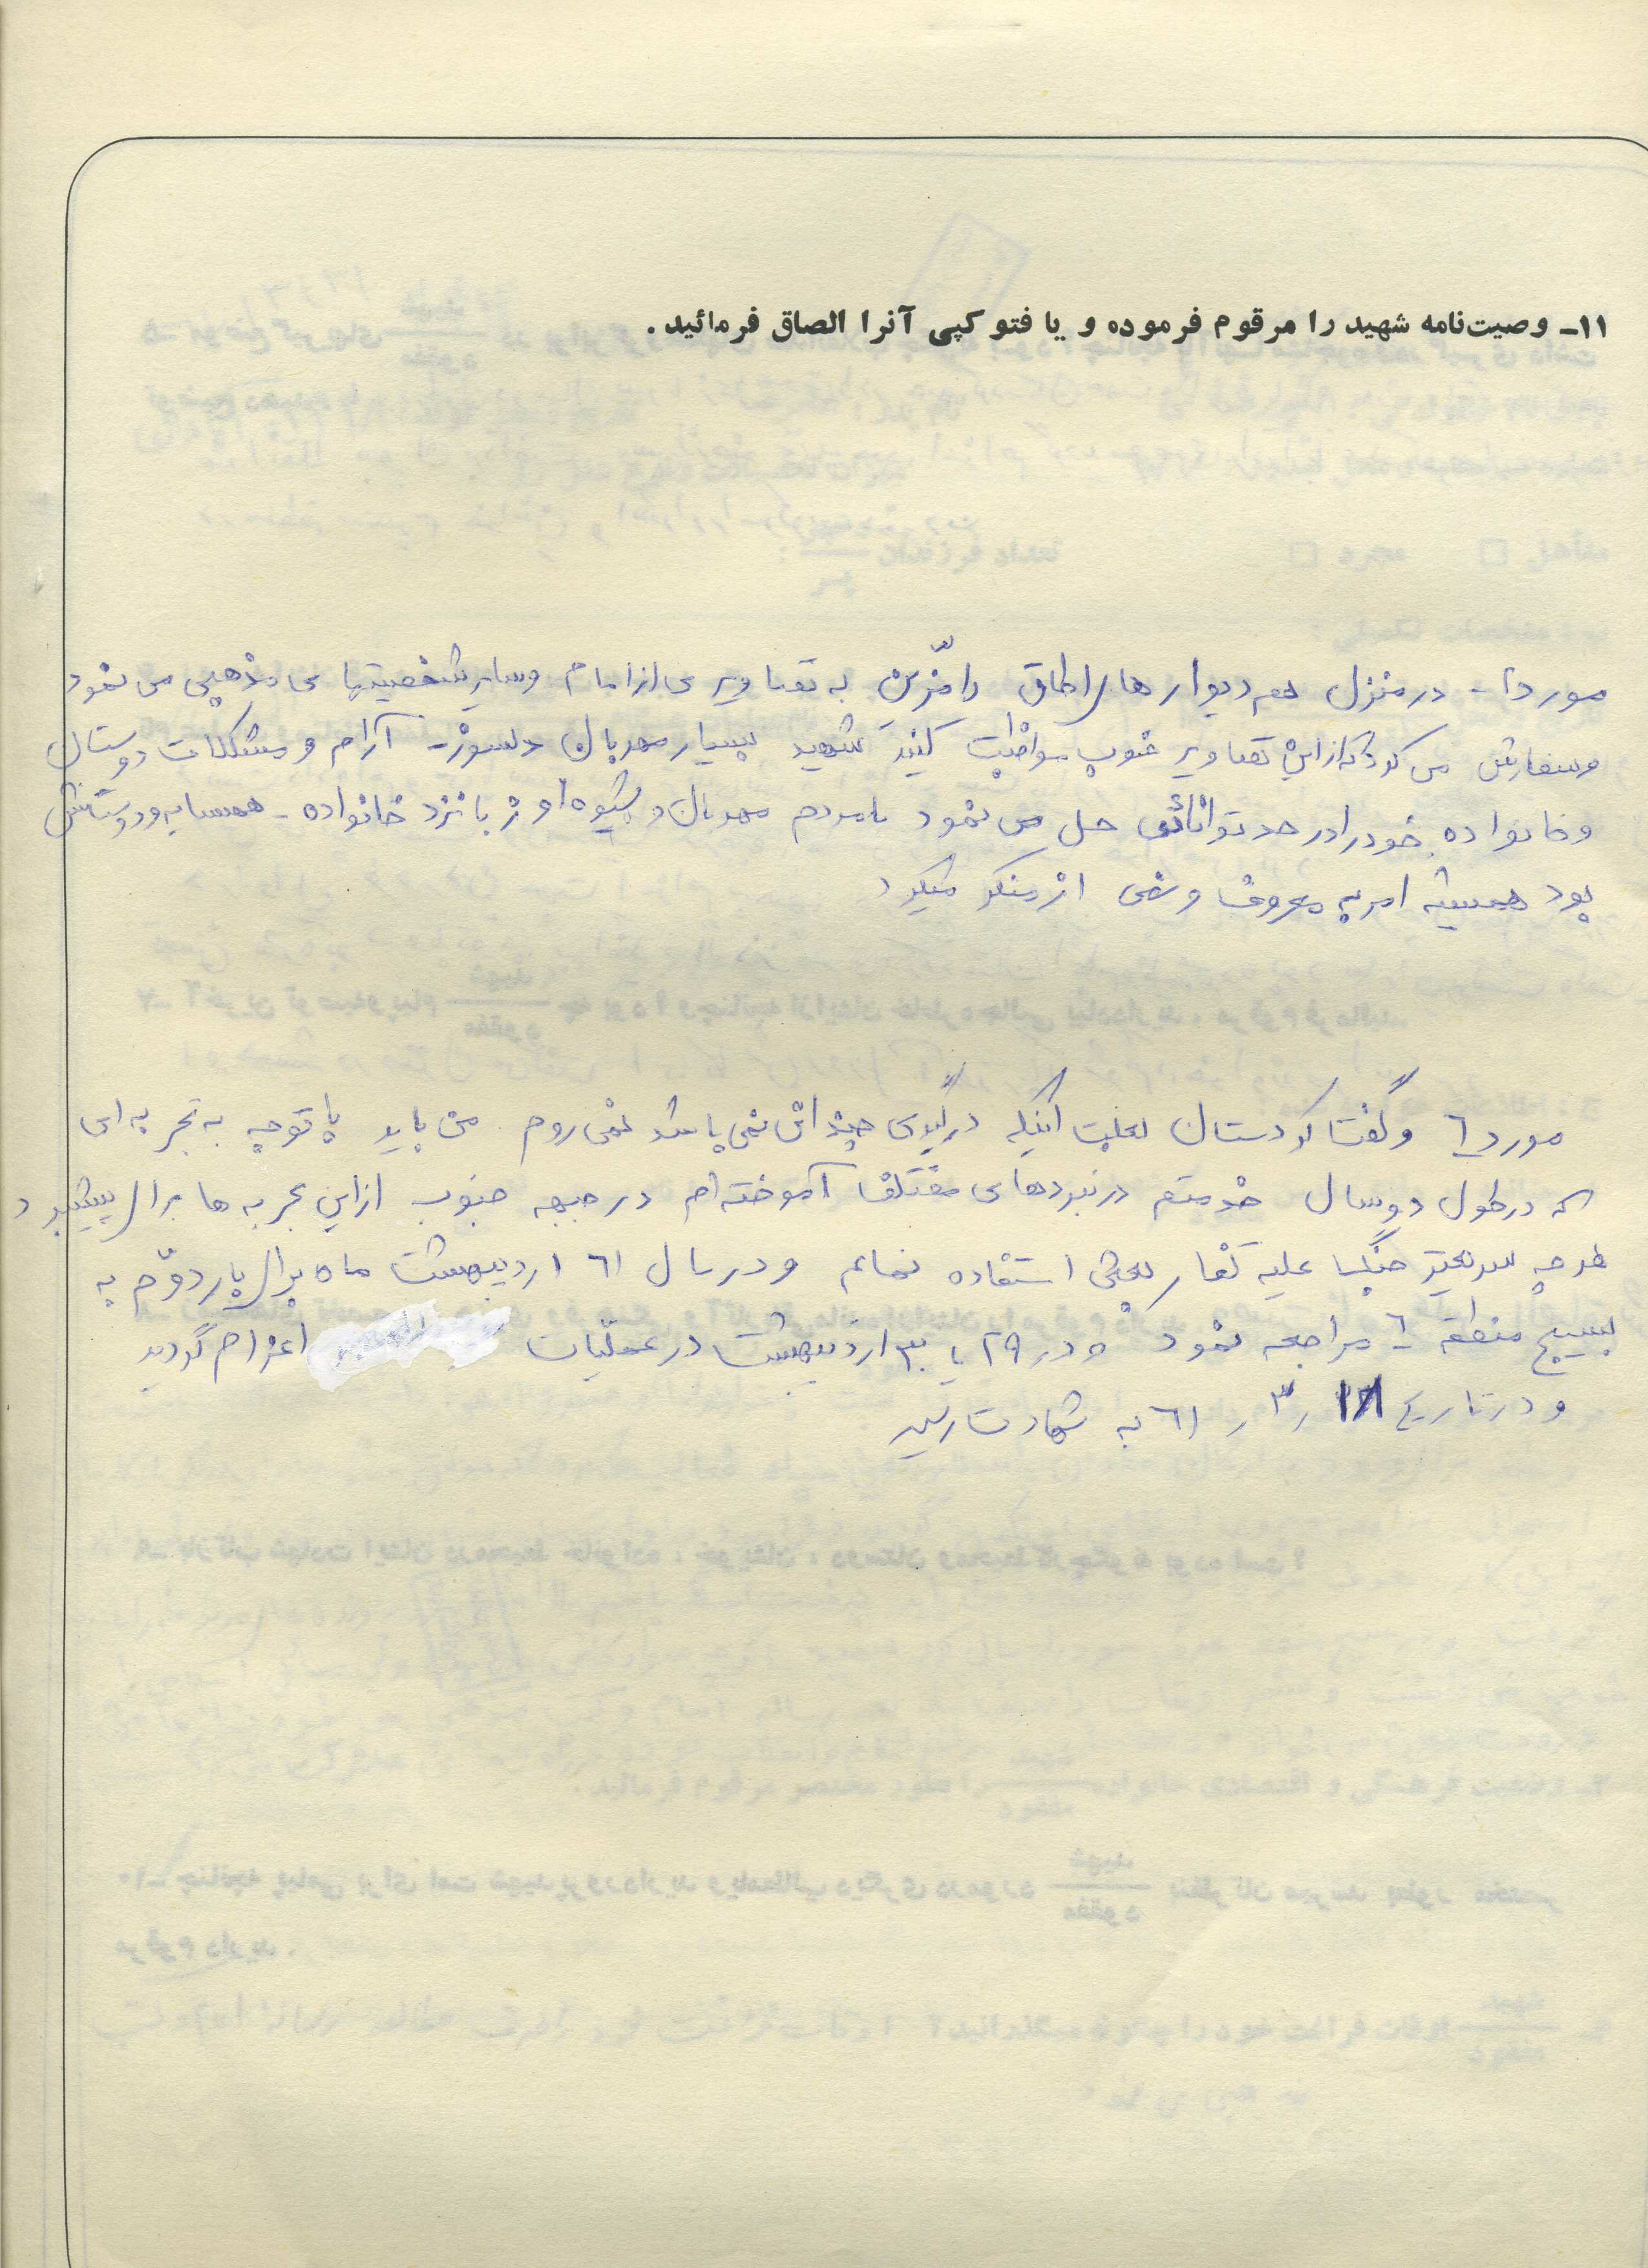 ۱۱ـ وصیت‌نامه شهید را مرقوم فرموده و یا فتو کپی آنرا الصاق فرمائید .
مورد ۲- در منزل هم دیوارهای اطاق را مزّین به تصاویری از امام و سایر شخصیتهای مذهبی می نمود
و سفارش می کرد که از این تصاویر خوب مواظبت کنید شهید بسیار مهربان دلسوز - آرام و مشکلات دوستان
و خانواده خود را در حد توانائی حل می نمود با مردم مهربان و شیوه او زبانزد خانواده - همسایه و دوستانش
بود همیشه امر به معروف و نهی از منکر میکرد
مورد ٦ و گفت کردستان بعلت اینکه درگیری چندانی نمی باشد نمی روم من باید با توجه به تجربه ای
که در طول دو سال خدمتم در نبردهای مختلف آموخته ام در جبهه جنوب از این تجربه ها برای پیشبرد
هر چه سریعتر جنگ علیه کفار بعثی استفاده نمایم و در سال ٦۱ اردیبهشت ماه برای بار دوّم به
بسیج منطقه ٦ مراجعه نمود و در ۲۹ یا ۳۰ اردیبهشت در عملیات اعزام گردید
و در تاریخ ۳ ر ٦۱ به شهادت رسید